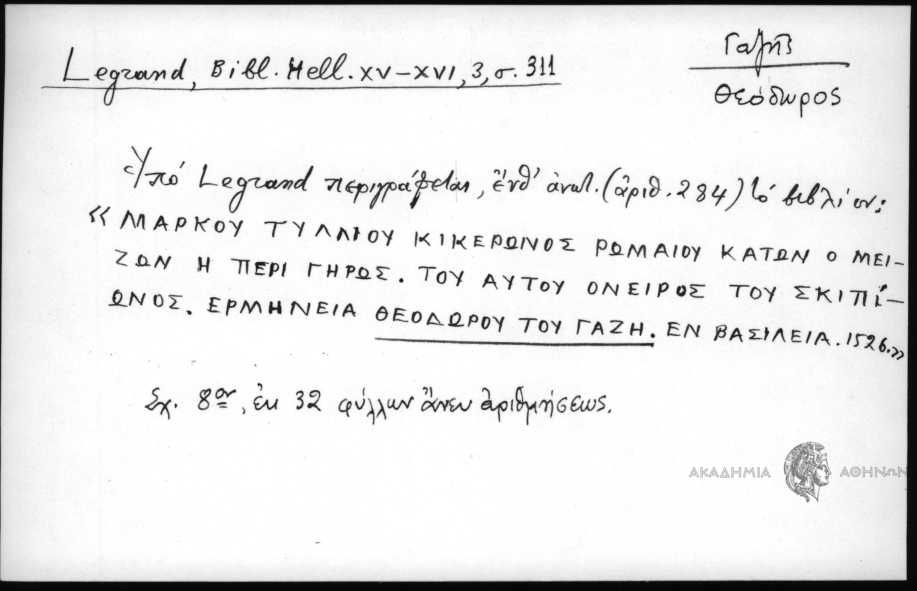 Γαζῆς
Θεόδωρος
Legrand, Bibl. Hell. XV–XVI, 3, σ. 311
Ὑπό Legrand περιγράφεται, ἔνθ' ἀνωτ. (ἀριθ. 284) τό βιβλίον:
«ΜΑΡΚΟΥ ΤΥΛΛΙΟΥ ΚΙΚΕΡΩΝΟΣ ΡΩΜΑΙΟΥ ΚΑΤΩΝ Ο ΜΕΙ–
ΖΩΝ Η ΠΕΡΙ ΓΗΡΩΣ. ΤΟΥ ΑΥΤΟΥ ΟΝΕΙΡΟΣ ΤΟΥ ΣΚΙΠΙ–
ΩΝΟΣ. ΕΡΜΗΝΕΙΑ ΘΕΟΔΩΡΟΥ ΤΟΥ ΓΑΖΗ. ΕΝ ΒΑΣΙΛΕΙΑ. 1526.»
Σχ. 8ον, ἐκ 32 φύλλων ἄνευ ἀριθμήσεως.
ΑΚΑΔΗΜΙΑ ΑΘΗΝΩΝ